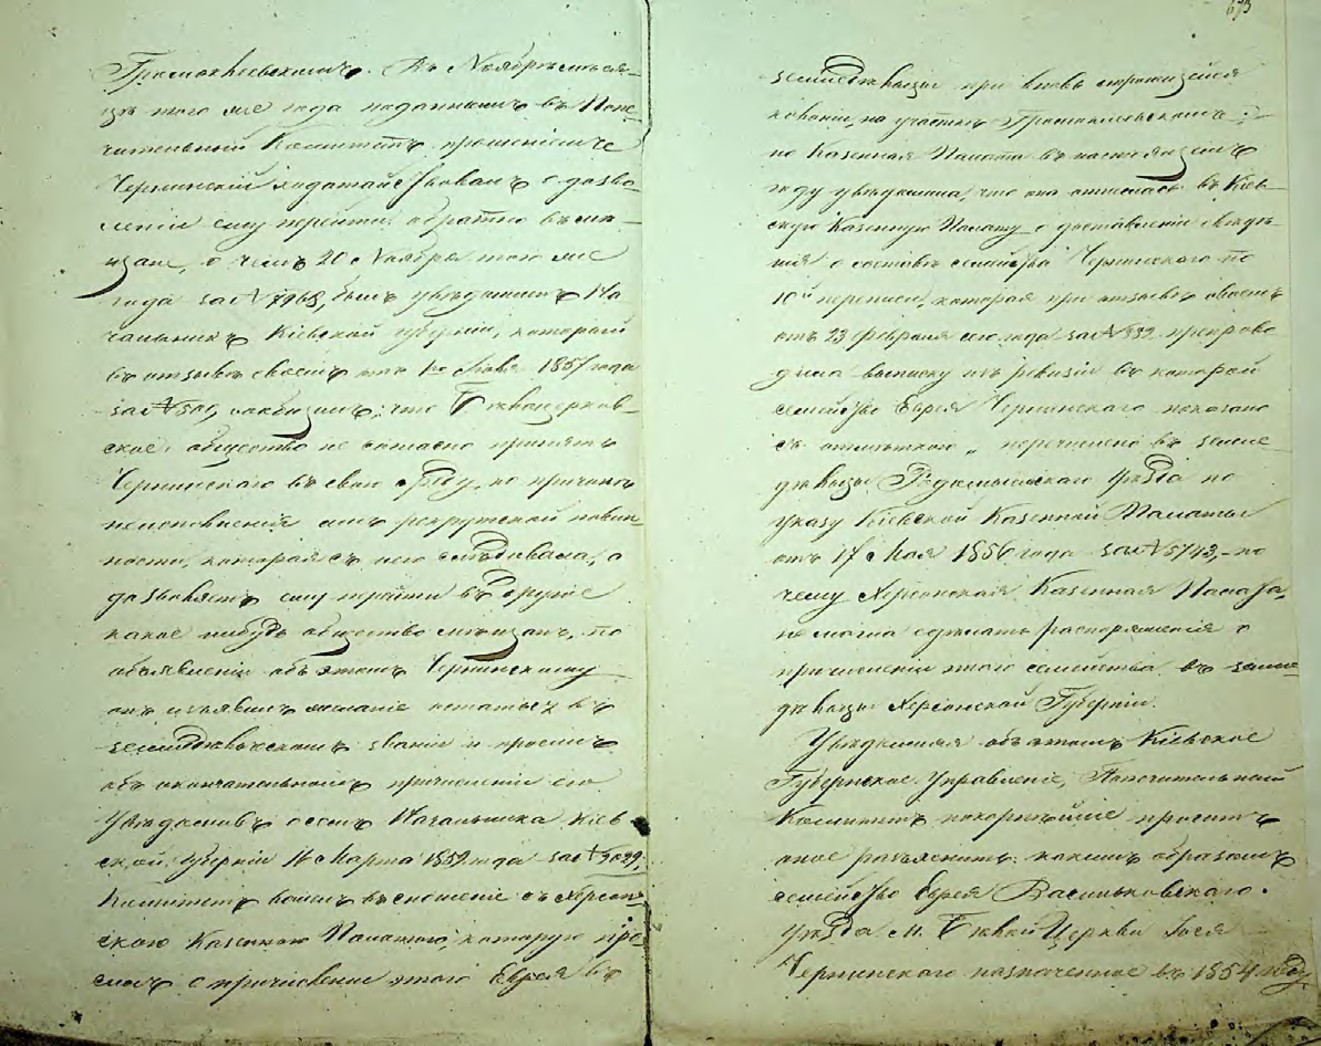 Громоклеевскомъ. Въ Ноябрѣ мѣся-
цѣ того же года поданнымъ въ Попе-
чительный Комитетъ прошеніемъ
Чернинскій ходатайствовалъ о дозво-
леніи ему перейти обратно въ мѣ-
щане, о чемъ 20 Ноября того же
года за № 7968, былъ увѣдомленъ На-
чальникъ Кіевской губерніи, который
въ отзывѣ своемъ отъ 1857 года
за № сообщилъ, что Бѣлоцерков-
ское общество не согласно принять
Чернинскаго въ свою среду, по причинѣ
неисполненія имъ рекрутской повин-
ности, которая съ него слѣдовала, а
дозволяетъ ему перейти въ другое
какое нибудь общество мѣщанъ, по
объявленіи объ этомъ Чернинскому
онъ изъявилъ желаніе остаться въ
земледѣльческомъ званіи и проситъ
объ окончательномъ причисленіи его
Увѣдомивъ о семъ Начальника Кіев-
ской Губерніи Марта года за №
Комитетъ вошелъ въ сношеніе съ Херсон-
скою Казенною Палатою, которую про-
силъ о причисленіи этого Еврея въ
673
земледѣльцы при вновь строющейся
колоніи, на участкѣ Громоклеевскомъ;
но Казенная Палата въ настоящемъ
году увѣдомила, что она относилась въ Кіев-
скую Казенную Палату о доставленіи свѣдѣ-
нія о составѣ семейства Чернинскаго по
10й переписи, которая при отзывѣ своемъ
отъ 23 февраля сего года за № 332 препрово-
дила выписку изъ ревизіи въ которой
семейство Еврея Чернинскаго показано
съ отмѣткою „перечислено въ земле-
дѣльцы Радомысльскаго уѣзда по
указу Кіевской Казенной Палаты
отъ 17 Мая 1856 года за № 5743,- по
чему Херсонская Казенная Палата,
не могла сдѣлать распоряженія о
причисленіи этого семейства въ земле-
дѣльцы Херсонской Губерніи.
Увѣдомляя объ этомъ Кіевское
Губернское Управленіе, Попечительный
Комитетъ покорнѣйше проситъ
оное разъяснить: какимъ образомъ
семейство Еврея Васильковскаго
уѣзда м. Бѣлой Церкви
Чернинскаго назначенное въ 1854 году